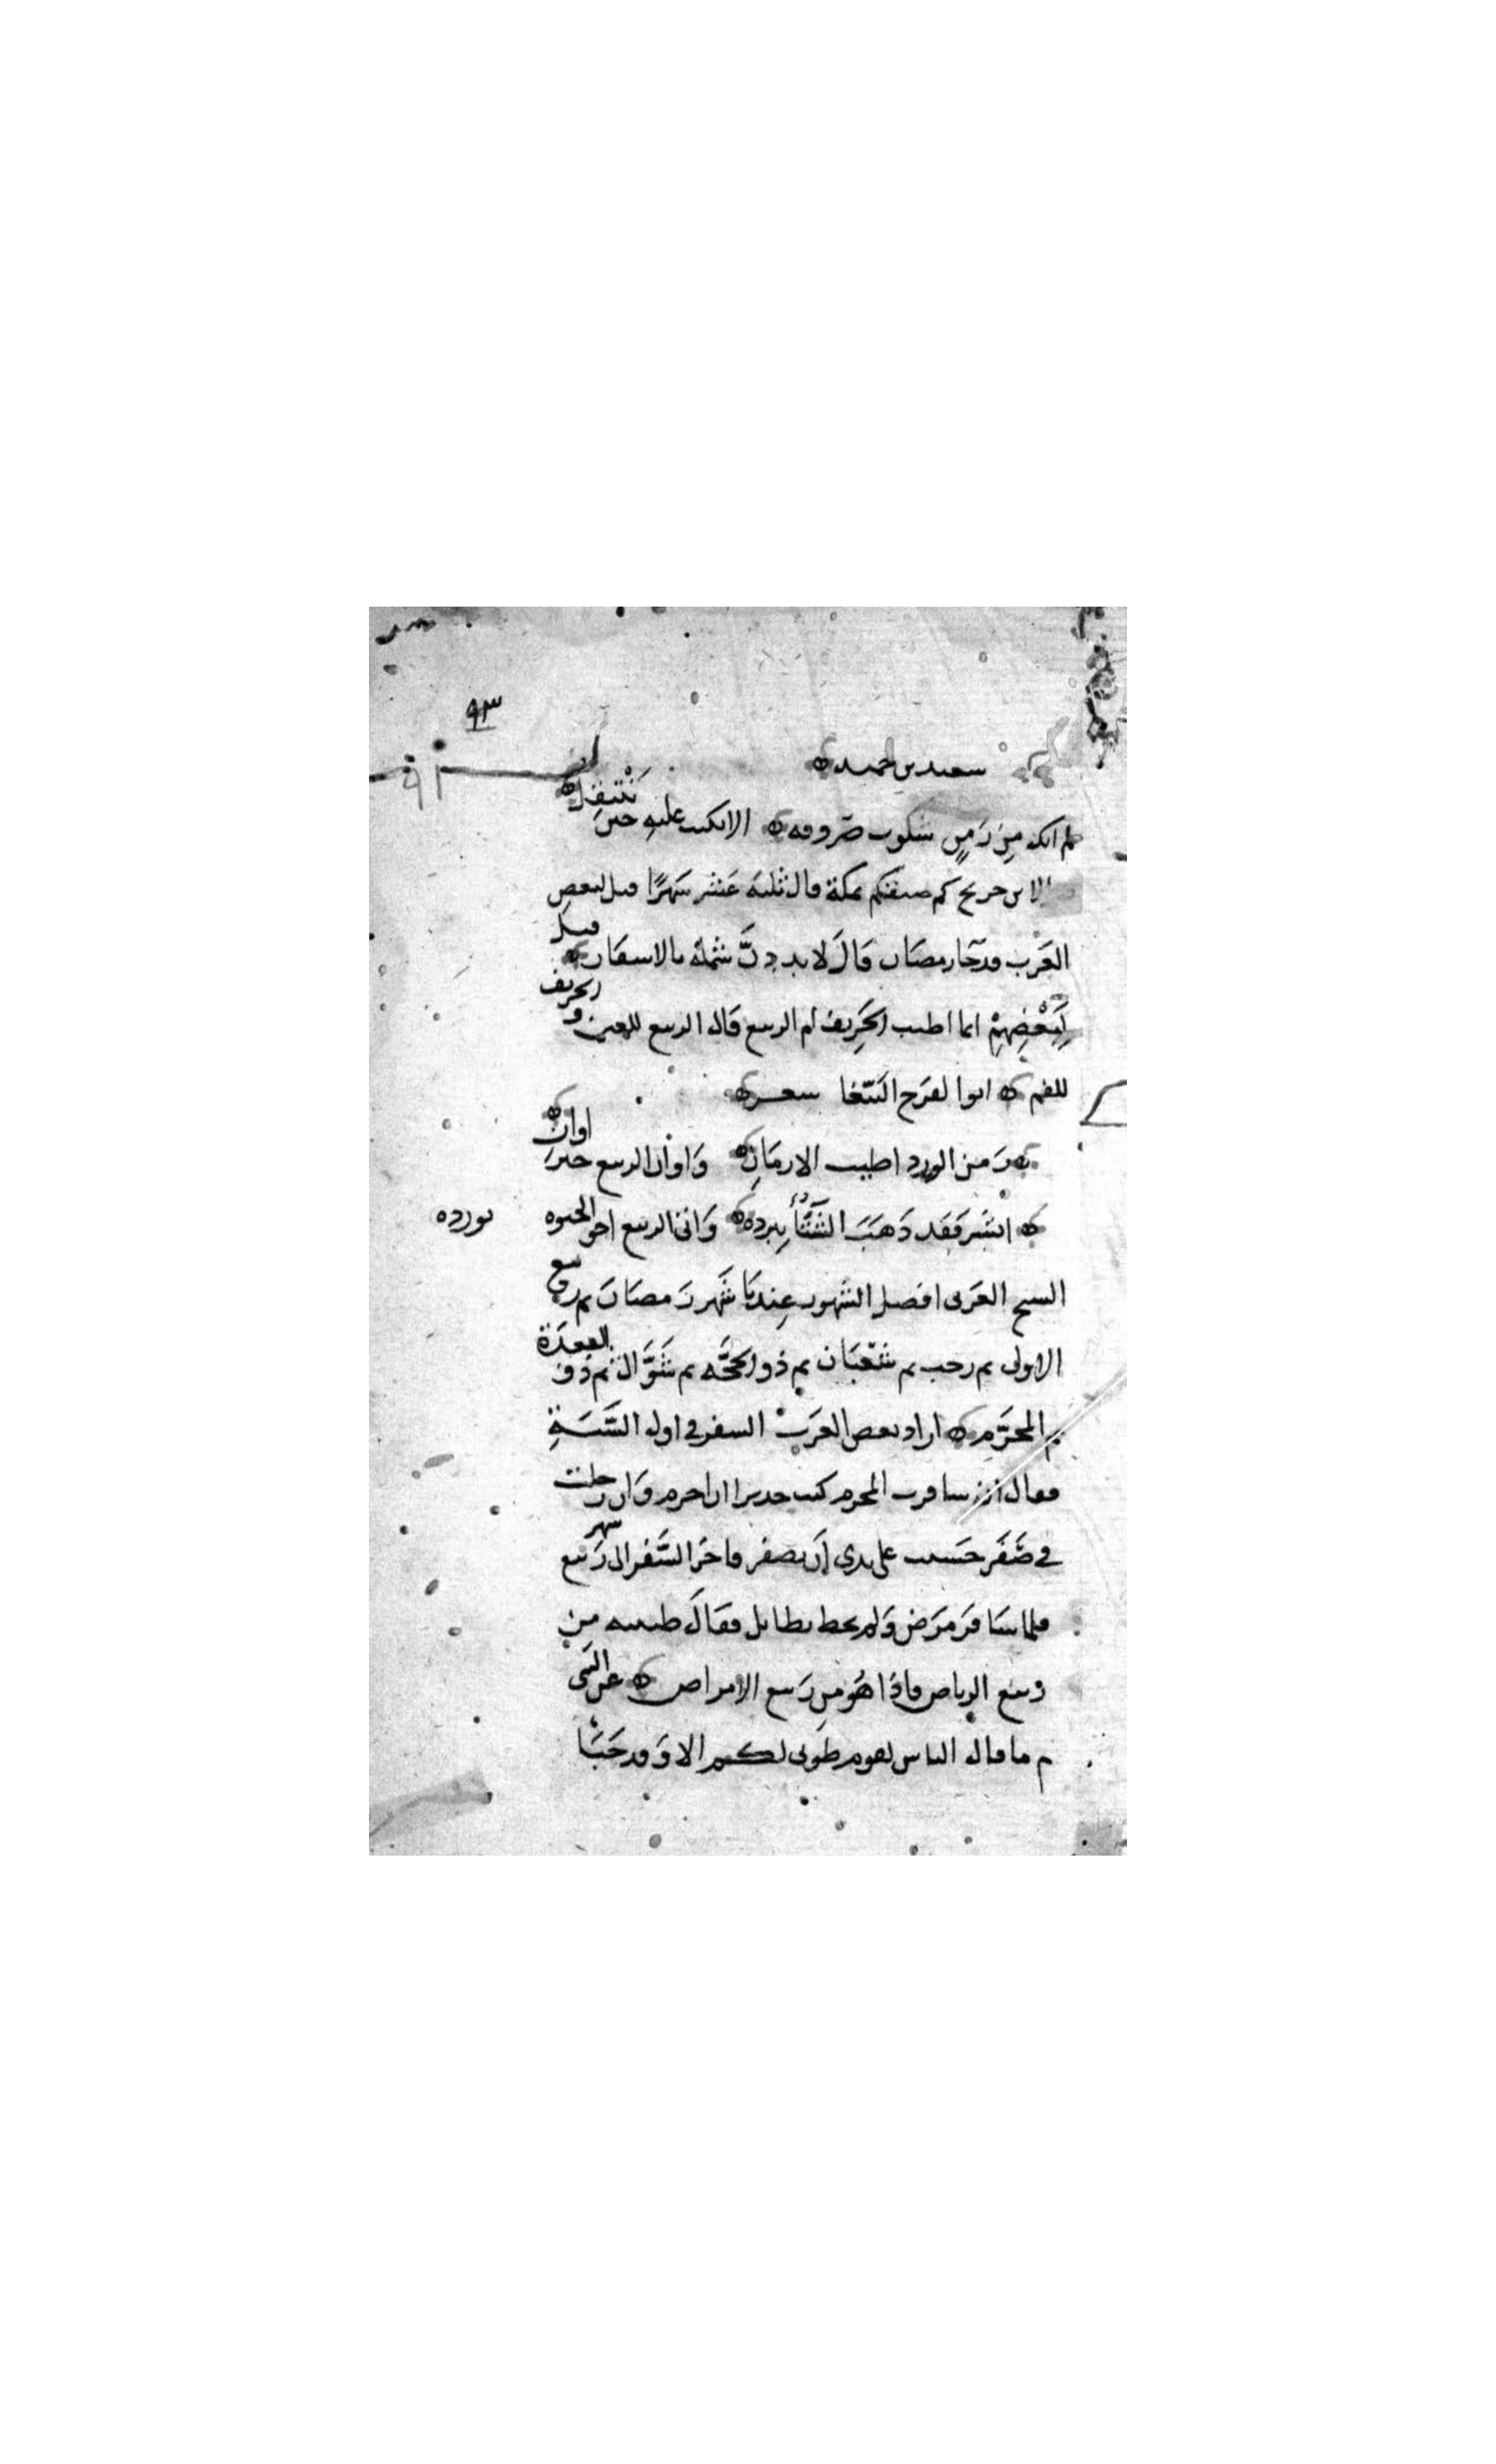 ٩٣
٩١
سعيد بن حميد
لم ابك من زمن شكوت صروفه الا بكيت عليه حين ينتقل
لابن جريج كم صيفكم بمكة قال ثلثة عشر شهرًا قيل لبعض
العَرب قد جا رمضان قَالَ لابددنَّ شمله بالاسفار قيل
لِبَعْضِهِمْ ايما اطيب الخَرِيف ام الربيع قَال الربيع للعين والخريف
للفم ابوا لفرَج البَبّغا شعر
زَمن الورد اطيب الازمَانِ وَاوان الربيع خير اوان
ابشر فَقَد ذهَبَ الشِّتَأُ ببرده وَاتى الربيع اخو الحيوه بورده
السبح العَربى افضل الشهور عِندنَا شَهر رَمضَان ثم ربيع
الاولى ثم رجب ثم شعْبَان ثم ذو الحجَّه ثم شَوَّال ثم ذو القعدَة
ثم المحرَّم اراد بعض العَرَب السفر فى اول السَّنَةِ
فقال ان سافرت المحرم كنت جديرا ان احرم وَان رحلت
فى صَفَر خشيت على يدى اَن يصفر فاخرَ السَّفر الى شهر رَبيع
فلما سَافَر مَرَض وَلم يحظ بطايل فقَالَ ظننته من
ربيع الرياض فاذا هُو من رَبيع الامراض عن النبى
م ما قال الناس لقوم طوبى لكم الا وَقد خَبَأ